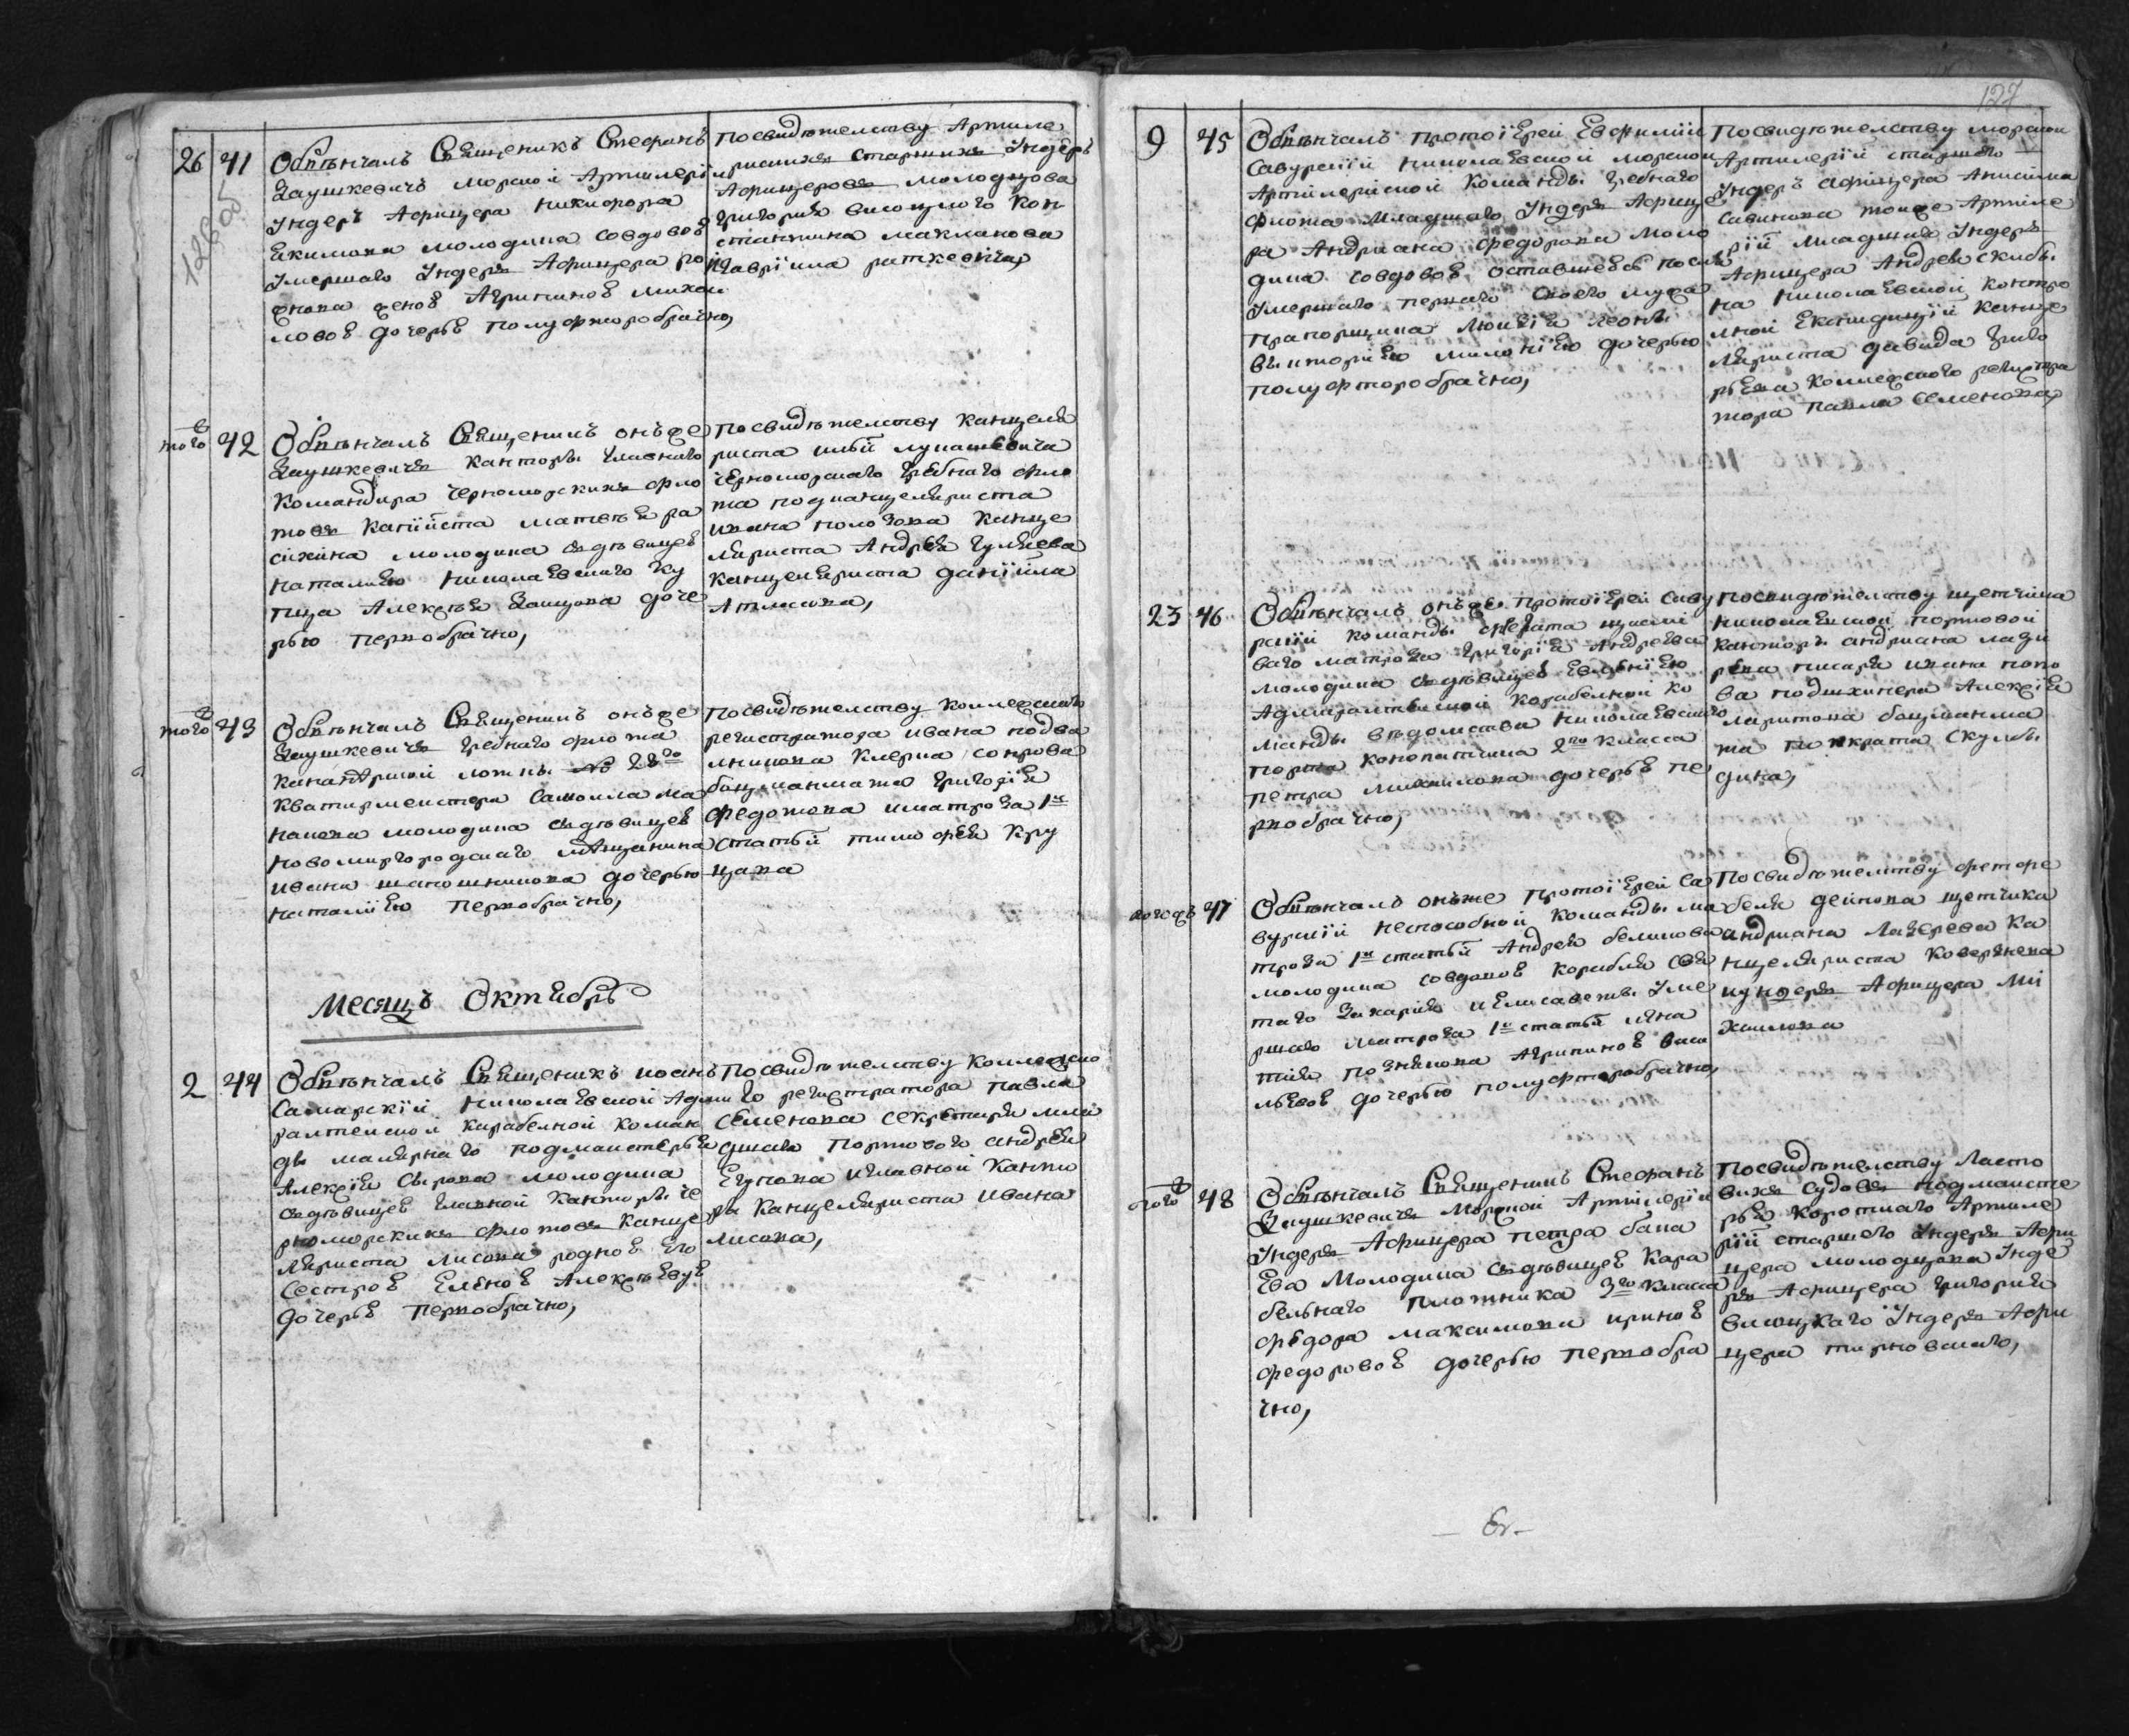 126об
26 41 Обвѣнчалъ Священикъ Стефанъ
Заушкевичъ морской Артилерiи
Ундеръ Афицера никифора
Екимова молодика совдовой
Умершаго Ундеръ Афицера
женой Агрипиной михаи
ловой дочерью полуфторобрачно,
Посвидѣтелству Артиле
рискихъ старшихъ Ундеръ
Афицеровъ молодцова
григорiя висоцкого кон
стантина маклакова
гаврiила раткевича,
того 42 Обвѣнчалъ Священикъ онъже
Заушкевичъ Канторы главнаго
Командира Черноморскихъ фло
товъ Капiиста матвѣя ра
сихина молодика здѣвицей
наталиею николаевскаго ку
пца Алексѣя Защова доче
рью первобрачно,
Посвидѣтелству Канцеля
риста илiи лукашевича
черноморскаго гребнаго фло
та подканцеляриста
ивана полозова Канце
ляриста Андрея гуляева
Канцеляриста данiила
Атласова,
того 43 Обвѣнчалъ Священикъ онъже
Заушкевичъ гребнаго флота
Канонѣрской лотки № 28го
Квартирмейстера Самоила ма
накова молодика здѣвицей
новомиргородскаго мѣщанина
ивана шапошникова дочерью
наталiею первобрачно,
Посвидѣтелству Коллежскаго
регистратора ивана подва
лникова Клерка
боцманмата григорiя
федотова иматроза 1й
статьи тимофея Кру
цака
Месяцъ Октябрь
2 44 Обвѣнчалъ Священикъ иоанъ
Самарскiй николаевской Адми
ралтейской карабелной коман
ды малярнаго подмастерья
Алексѣя Сырова молодика
здѣвицей главной Канторы че
рноморскихъ флотовъ Канце
ляриста лисова родной его
сестрой Еленой Алексѣевой
дочерью первобрачно,
Посвидѣтелству Коллежско
го регистратора павла
Семенова секретаря мла
дшаго портового андрея
Егупова иглавной Канто
ры Канцеляриста ивана
лисова,
127
9 45 Обвѣнчалъ протоiерей Евфимiй
Савурскiй николаевской морской
Артилериской команды гребнаго
флота младшаго Ундеръ Афице
ра Андриана федорова моло
дика совдовой оставшейсь послѣ
Умершаго перваго своего мужа
прапорщика
викторiею дочерью
полуфторобрачно,
Посвидѣтелству морской
Артилерiи старшего
Ундеръ афицера Анисима
Савинова тойже Артиле
рiи младших Ундеръ
Афицера Андрея скибы
на николаевской Контро
лной Експедицiи Канце
ляриста давида григо
рьева коллежского регистра
тора павла Семенова,
23 46 Обвѣнчалъ онъже протоiерей Саву
рскiй команды фрегата
ваго матроза григорiя Андреева
молодика здѣвицей Евдокiею
Адмиралтейской Корабелной ко
манды вѣдомства николаевскаго
порта конопатчика 2го класса
петра михаилова дочерью пе
рвобрачно,
Посвидѣтелству щетчика
николаевской портовой
Канторы андриана лазы
рева писаря ивана попо
ва подшхипера Алексѣя
харитова боцманма
та панкрата Скулбы
дина,
тогожъ 47 Обвѣнчалъ онъже протоiерей Са
вурскiй неспособной команды ма
троза 1й статьи Андрея беликова
молодика совдовой корабля Свя
таго Захария иелисаветы Уме
ршаго матроза 1й статьи игна
тия познякова Агрипиной васи
льевой дочерью полуфторобрачно,
Посвидѣтелству фетфе
беля дейнова щетчика
андриана лазерева Ка
нцеляриста коверзнева
иундеръ Афицера Ми
хаилова
того 48 Обвѣнчалъ Священикъ Стефанъ
Заушкевичъ морской Артилерiи
Ундеръ Афицера петра бака
Ева молодика здѣвицей Кара
бельнаго плотника 3го класса
фѣдора максимова ириной
федоровой дочерью первобра
чно,
Посвидѣтелству ласто
выхъ судовъ подмасте
рья короткаго Артиле
рiи старшего Ундеръ Афи
цера молодцова Унде
ръ Афицера григория
висоцкаго Ундеръ Афи
цера тарновскаго,